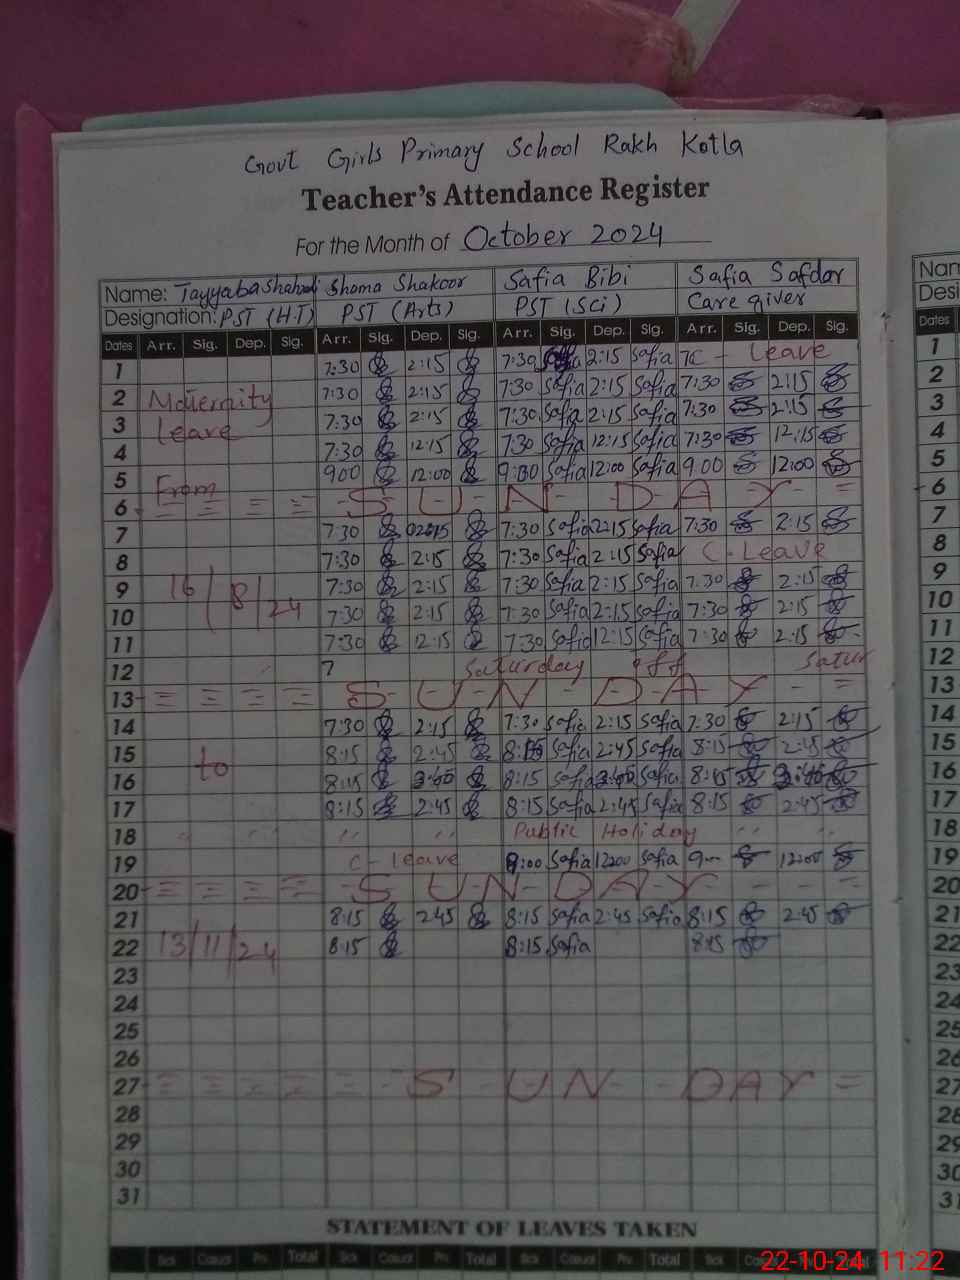 Govt Girls Primary School Rakh Kotla
Teacher's Attendance Register
For the Month of October 2024
Name: Tayyaba Shahzadi Shama Shakoor Safia Bibi Safia Safdar
Designation: PST (H.T) PST (Arts) PST (Sci) Care giver
Dates Arr. Sig. Dep. Sig. Arr. Sig. Dep. Sig. Arr. Sig. Dep. Sig. Arr. Sig. Dep. Sig.
1 7:30 2:15 7:30 2:15 Safia C - Leave
2 Maternity 7:30 2:15 7:30 Safia 2:15 Safia 7:30 2:15
3 Leave 7:30 2:15 7:30 Safia 2:15 Safia 7:30 2:15
4 7:30 12:15 7:30 Safia 12:15 Safia 7:30 12:15
5 From 9:00 12:00 9:00 Safia 12:00 Safia 9:00 12:00
6 - S U N D A Y - =
7 7:30 02:15 7:30 Safia 2:15 Safia 7:30 2:15
8 7:30 2:15 7:30 Safia 2:15 Safia C - Leave
9 16/8/24 7:30 2:15 7:30 Safia 2:15 Safia 7:30 2:15
10 7:30 2:15 7:30 Safia 2:15 Safia 7:30 2:15
11 7:30 12:15 7:30 Safia 12:15 Safia 7:30 2:15
12 7 Saturday off Satur
13 - S U N - D A Y - =
14 7:30 2:15 7:30 Safia 2:15 Safia 7:30 2:15
15 to 8:15 2:45 8:15 Safia 2:45 Safia 8:15 2:45
16 8:15 8:15 Safia Safia 8:15
17 8:15 2:45 8:15 Safia 2:45 Safia 8:15 2:45
18 Public Holiday
19 C - leave 9:00 Safia 12:00 Safia 9 12:00
20 - S U N - D A Y - =
21 8:15 2:45 8:15 Safia 2:45 Safia 8:15 2:45
22 13/11/24 8:15 8:15 Safia 8:15
23
24
25
26
27 - S U N - D A Y =
28
29
30
31
STATEMENT OF LEAVES TAKEN
Sick Casual Prv. Total Sick Casual Prv. Total Sick Casual Prv. Total Sick
Nam
Desi
Dates
1
2
3
4
5
6
7
8
9
10
11
12
13
14
15
16
17
18
19
20
21
22
23
24
25
26
27
28
29
30
31
22-10-24 11:22